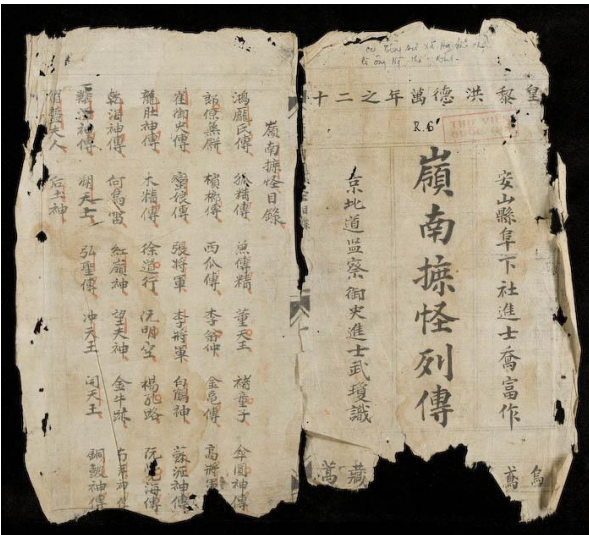 皇黎洪德萬年之二十
R.6
THƯ VIỆN
安山縣阜下社進士喬富作
嶺南摭怪列傳
京北道監察御史進士武瓊識
藏蒿
嶺南摭怪目錄
鴻龐氏傳 狐精傳 魚傳精 董天王 褚童子 傘圓神傳
郎僚蒸餅 檳榔傳 西瓜傳 李翁仲 金龜傳 高將軍
崔御史傳 蠻娘傳 張將軍 李將軍 白鶴神 蘇瀝神傳
龍肚神傳 木精傳 徐道行 阮明空 楊孔路 阮覺海傳
乾海神傳 何烏雷 紅嶺神 望夫神 金牛
神傳 明天王 弘聖傳 沖天王 開天王 銅鼓神傳
夫人 后土神